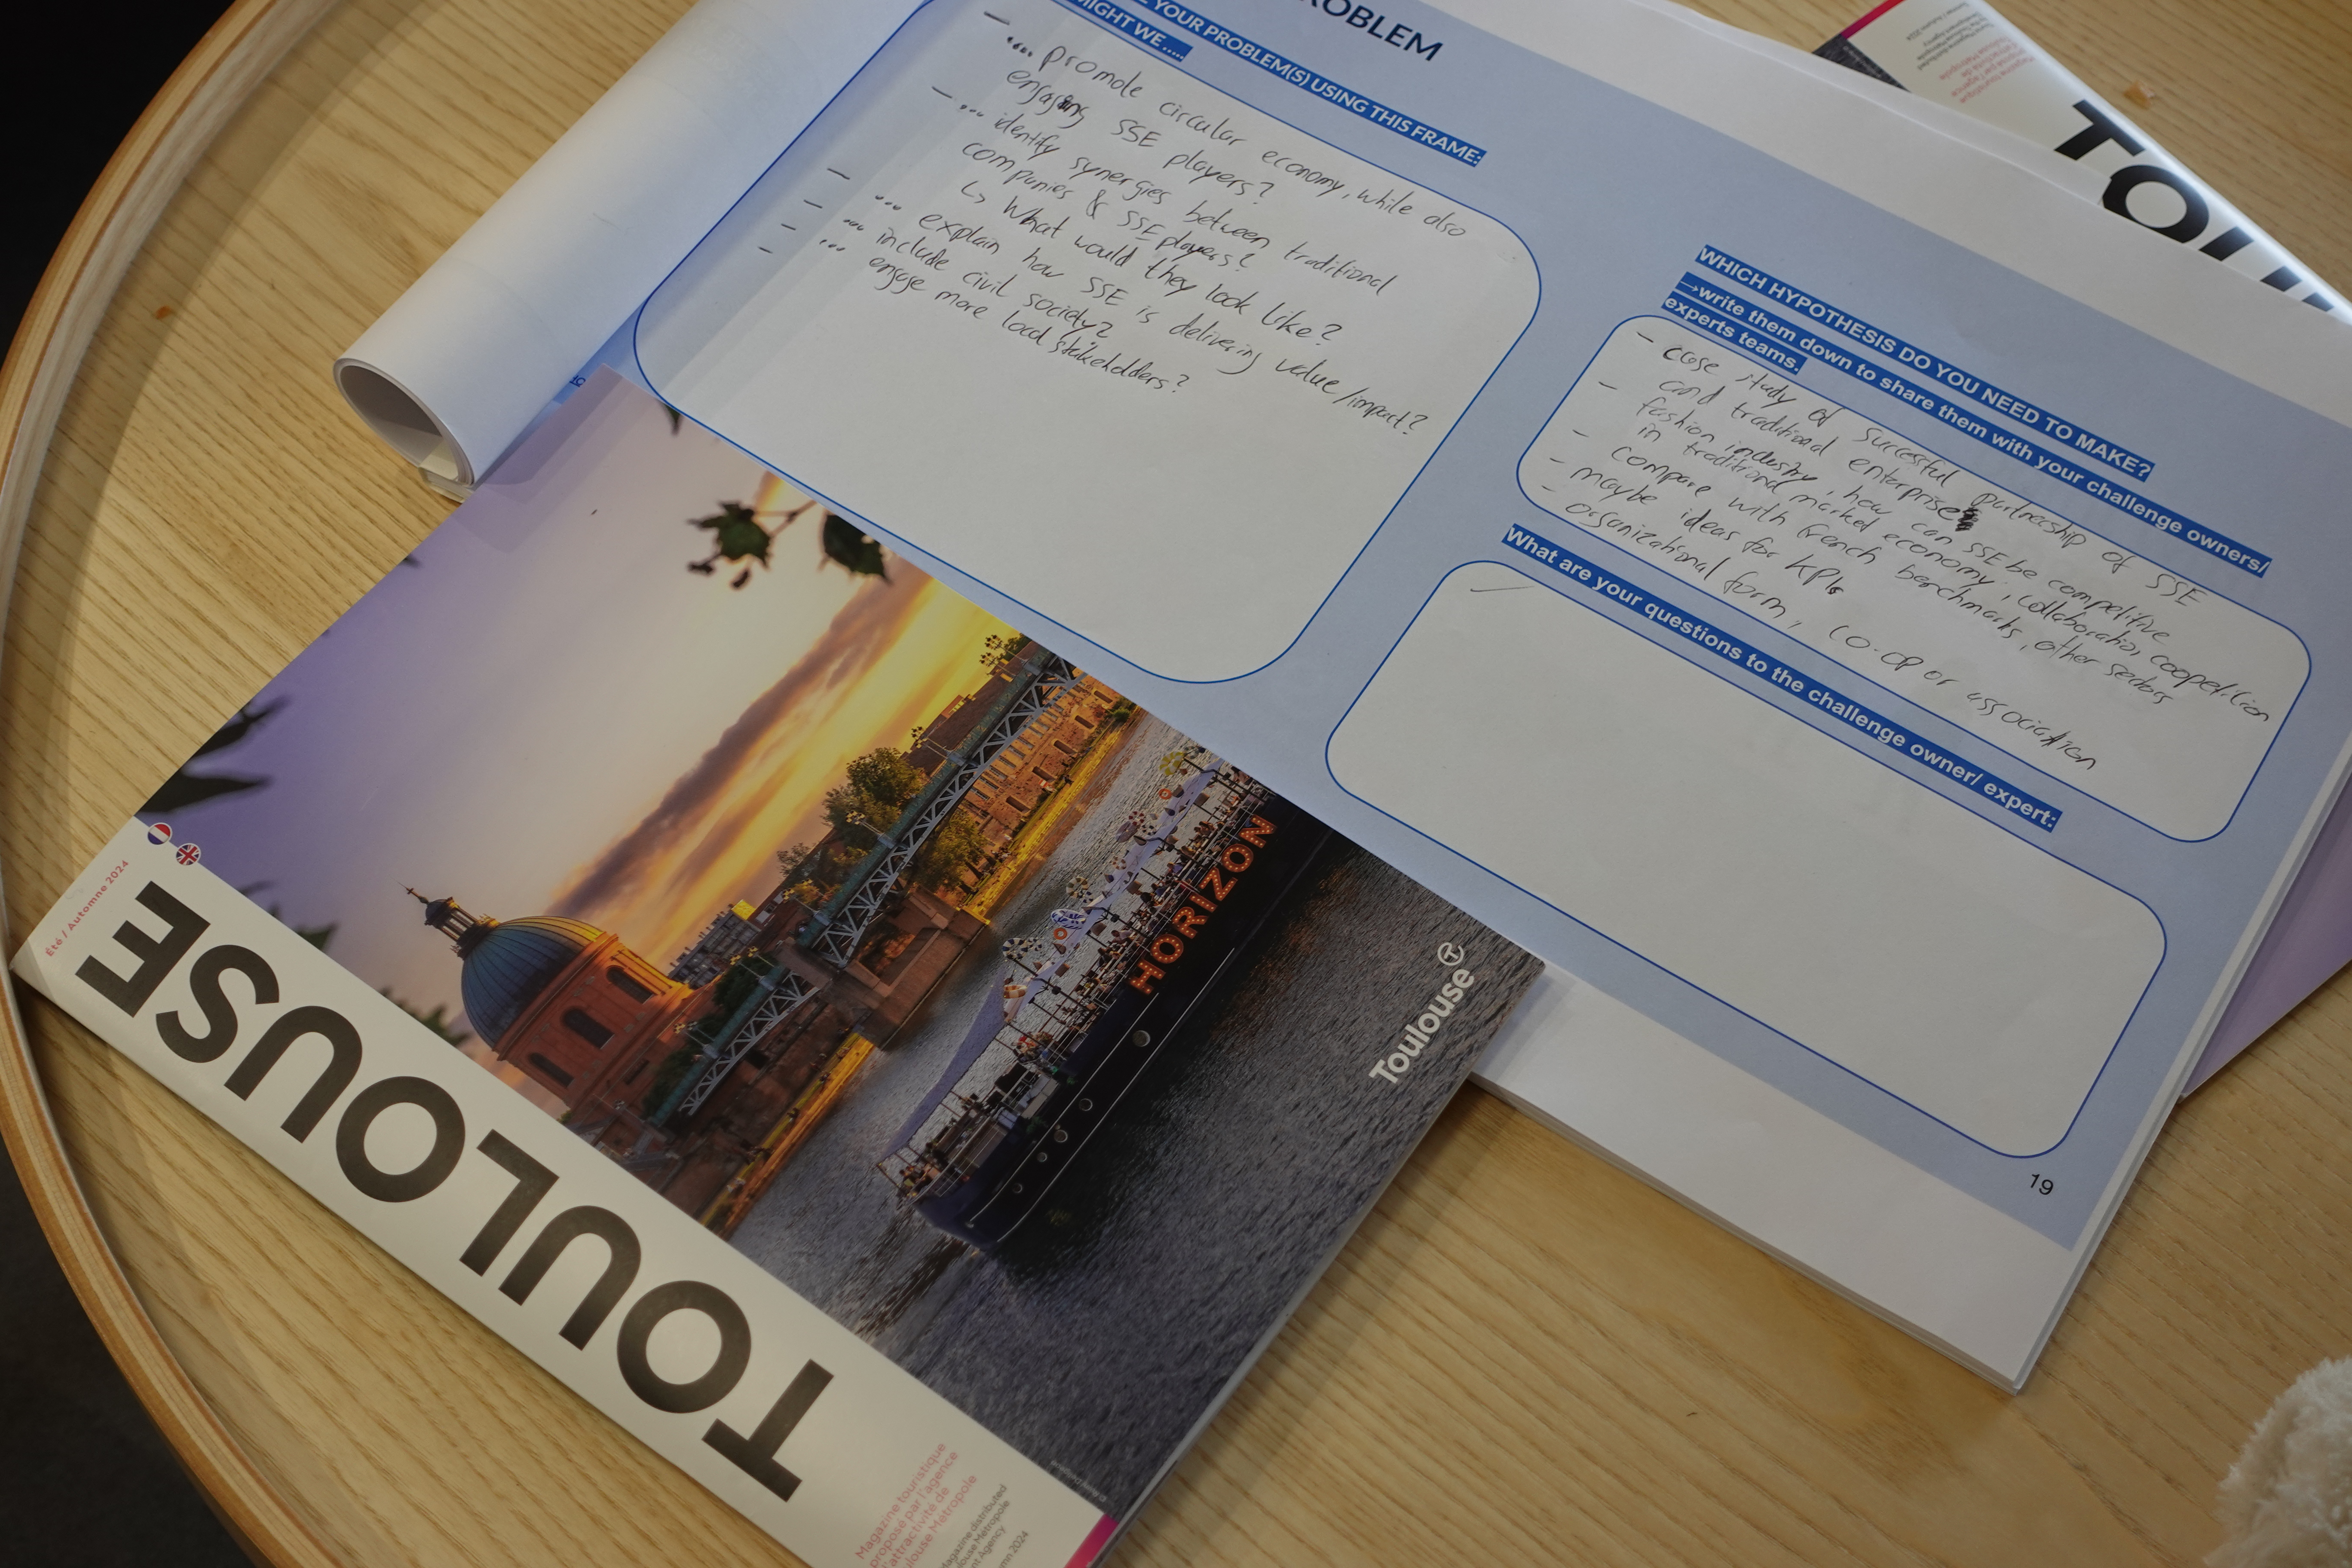 PROBLEM
YOUR PROBLEM(S) USING THIS FRAME:
MIGHT WE .....
- .... promote circular economy, while also
engaging SSE players?
- ... identify synergies between traditional
companies & SSE players?
↳ What would they look like?
- ... explain how SSE is delivering value/impact?
- .... include civil society?
- ... engage more local stakeholders?
-
WHICH HYPOTHESIS DO YOU NEED TO MAKE?
→write them down to share them with your challenge owners/
experts teams.
- case study of successful partnership of SSE
and traditional enterprise
- fashion industry, how can SSE be competitive
in traditional market economy, collaboration, coopetition
- compare with french benchmarks, other sectors
- maybe ideas for KPIs
- organizational form, co-op or association
What are your questions to the challenge owner/ expert:
19
TOULOUSE
Été / Automne 2024
HORIZON
Toulouse
Magazine touristique
proposé par l'agence
d'attractivité de
Toulouse Métropole
TOU